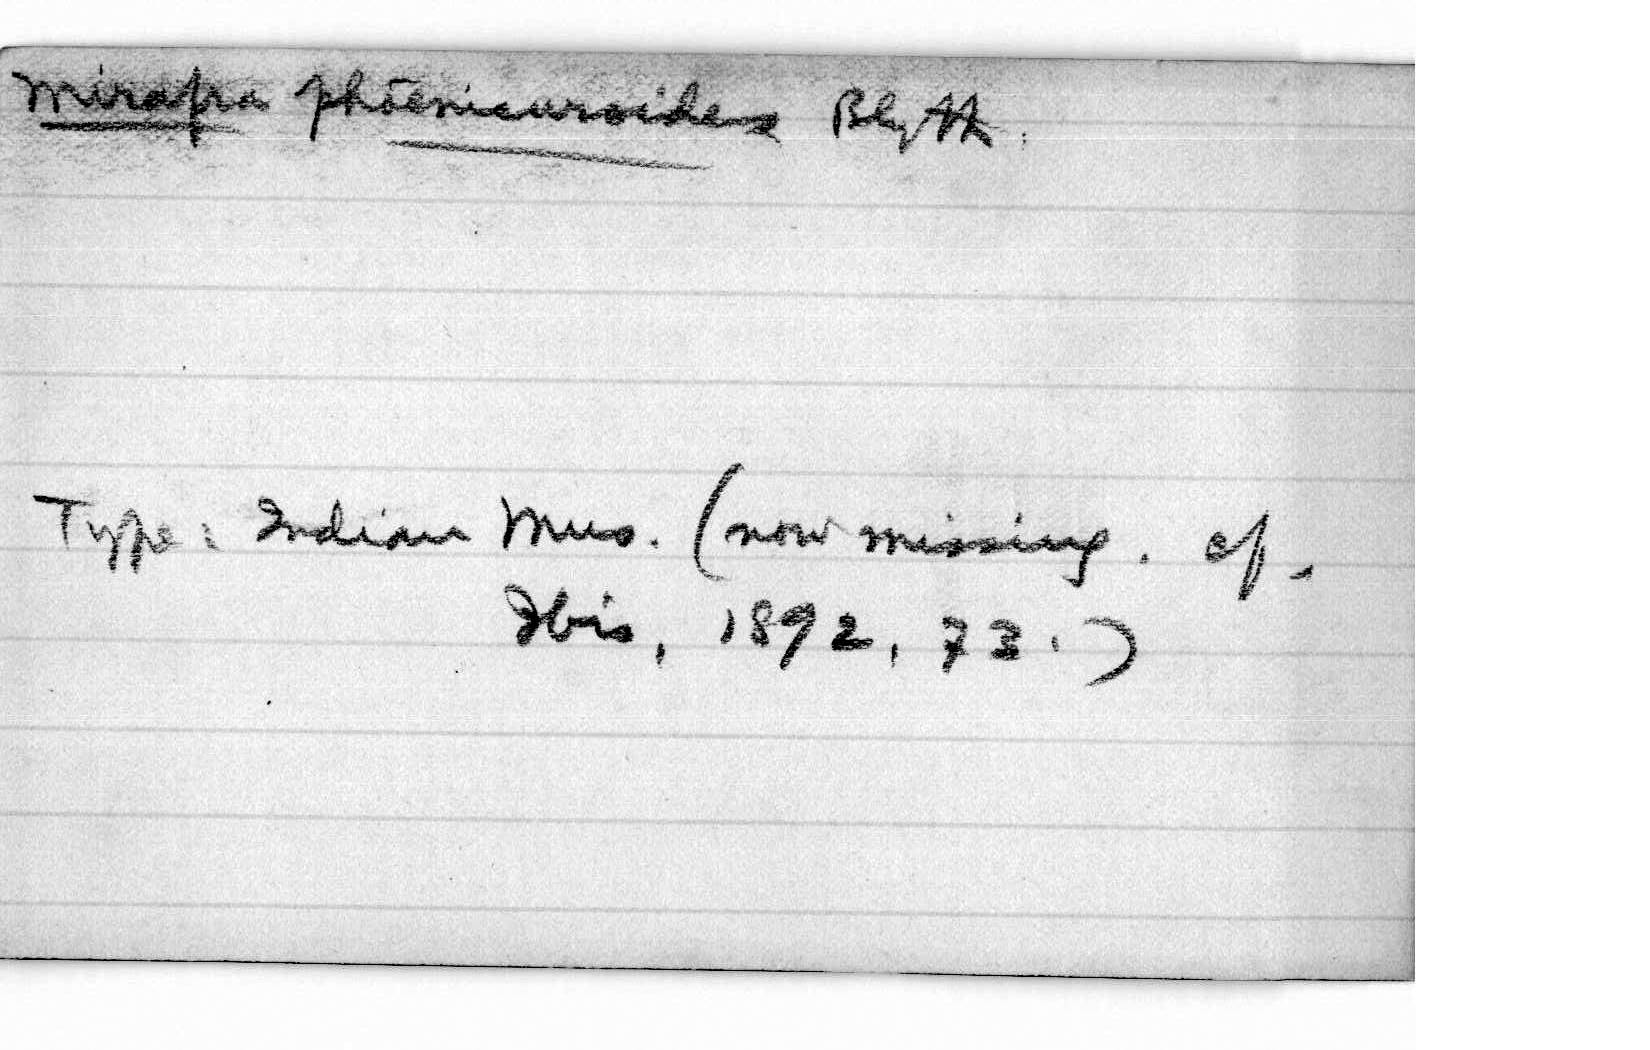 Mirafra phoenicuroides Blyth.
Type: Indian Mus. (now missing. cf.
Ibis, 1892, 73.)